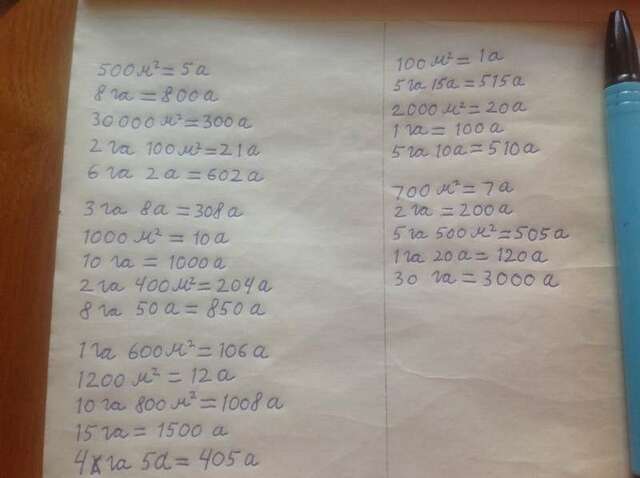 500 м² = 5 а
8 га = 800 а
30 000 м² = 300 а
2 га 100 м² = 21 а
6 га 2 а = 602 а
3 га 8а = 308 а
1000 м² = 10 а
10 га = 1000 а
2 га 400 м² = 204 а
8 га 50 а = 850 а
1 га 600 м² = 106 а
1200 м² = 12 а
10 га 800 м² = 1008 а
15 га = 1500 а
4 га 5а = 405 а
100 м² = 1а
5 га 15а = 515а
2000 м² = 20а
1 га = 100а
5 га 10а = 510а
700 м² = 7а
2 га = 200а
5 га 500 м² = 505а
1 га 20а = 120а
30 га = 3000а